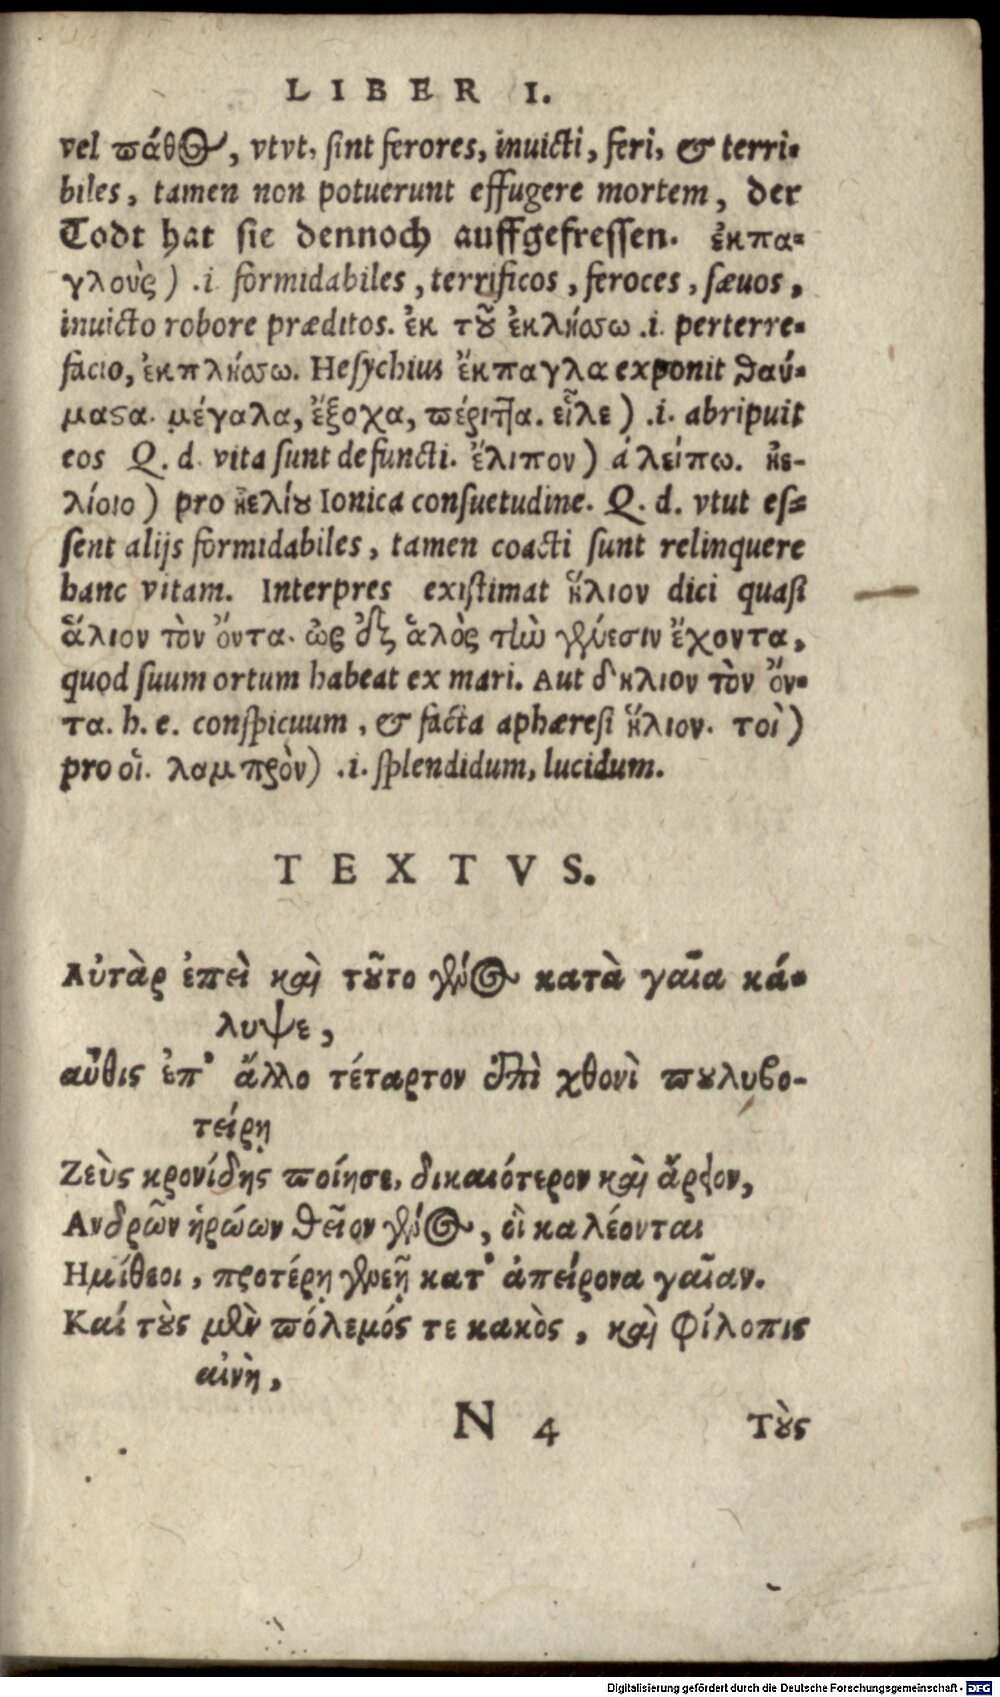 LIBER I.
vel πάθος, vtvt, sint ferores, inuicti, feri, & terri-
biles, tamen non potuerunt effugere mortem, der
Todt hat sie dennoch auffgefressen. ἐκπα-
γλοὺς) .i. formidabiles, terrificos, feroces, sæuos,
inuicto robore præditos. ἐκ τοῦ ἐκλήσσω .i. perterre-
facio, ἐκπλήσσω. Hesychius ἔκπαγλα exponit θαύ-
μαστα. μέγαλα, ἔξοχα, πέριττα. εἷλε) .i. abripuit
eos Q. d. vita sunt defuncti. ἔλιπον) ἀ λείπω. ἠε-
λίοιο) pro ἠελίου Ionica consuetudine. Q. d. vtut es-
sent alijs formidabiles, tamen coacti sunt relinquere
hanc vitam. Interpres existimat ἥλιον dici quasi
ἅλιον τὸν ὄντα. ὡς ἐξ ἁλὸς τὴν γένεσιν ἔχοντα,
quod suum ortum habeat ex mari. Aut δήλιον τὸν ὄν-
τα. h. e. conspicuum, & facta aphæresi ἥλιον. τοὶ)
pro οἱ. λαμπρὸν) .i. splendidum, lucidum.
TEXTVS.
Αὐτὰρ ἐπεὶ καὶ τοῦτο γένος κατὰ γαῖα κά-
λυψε,
αὖθις ἐπ' ἄλλο τέταρτον ἐπὶ χθονὶ πουλυβο-
τείρῃ
Ζεὺς κρονίδης ποίησε, δικαιότερον καὶ ἄρειον,
Ανδρῶν ἡρώων θεῖον γένος, οἳ καλέονται
Ημίθεοι, προτέρῃ γενεῇ κατ' ἀπείρονα γαῖαν.
Καί τοὺς μὲν πόλεμός τε κακὸς, καὶ Φίλοπις
αἰνὴ,
N 4 Τοὺς
Digitalisierung gefördert durch die Deutsche Forschungsgemeinschaft - DFG